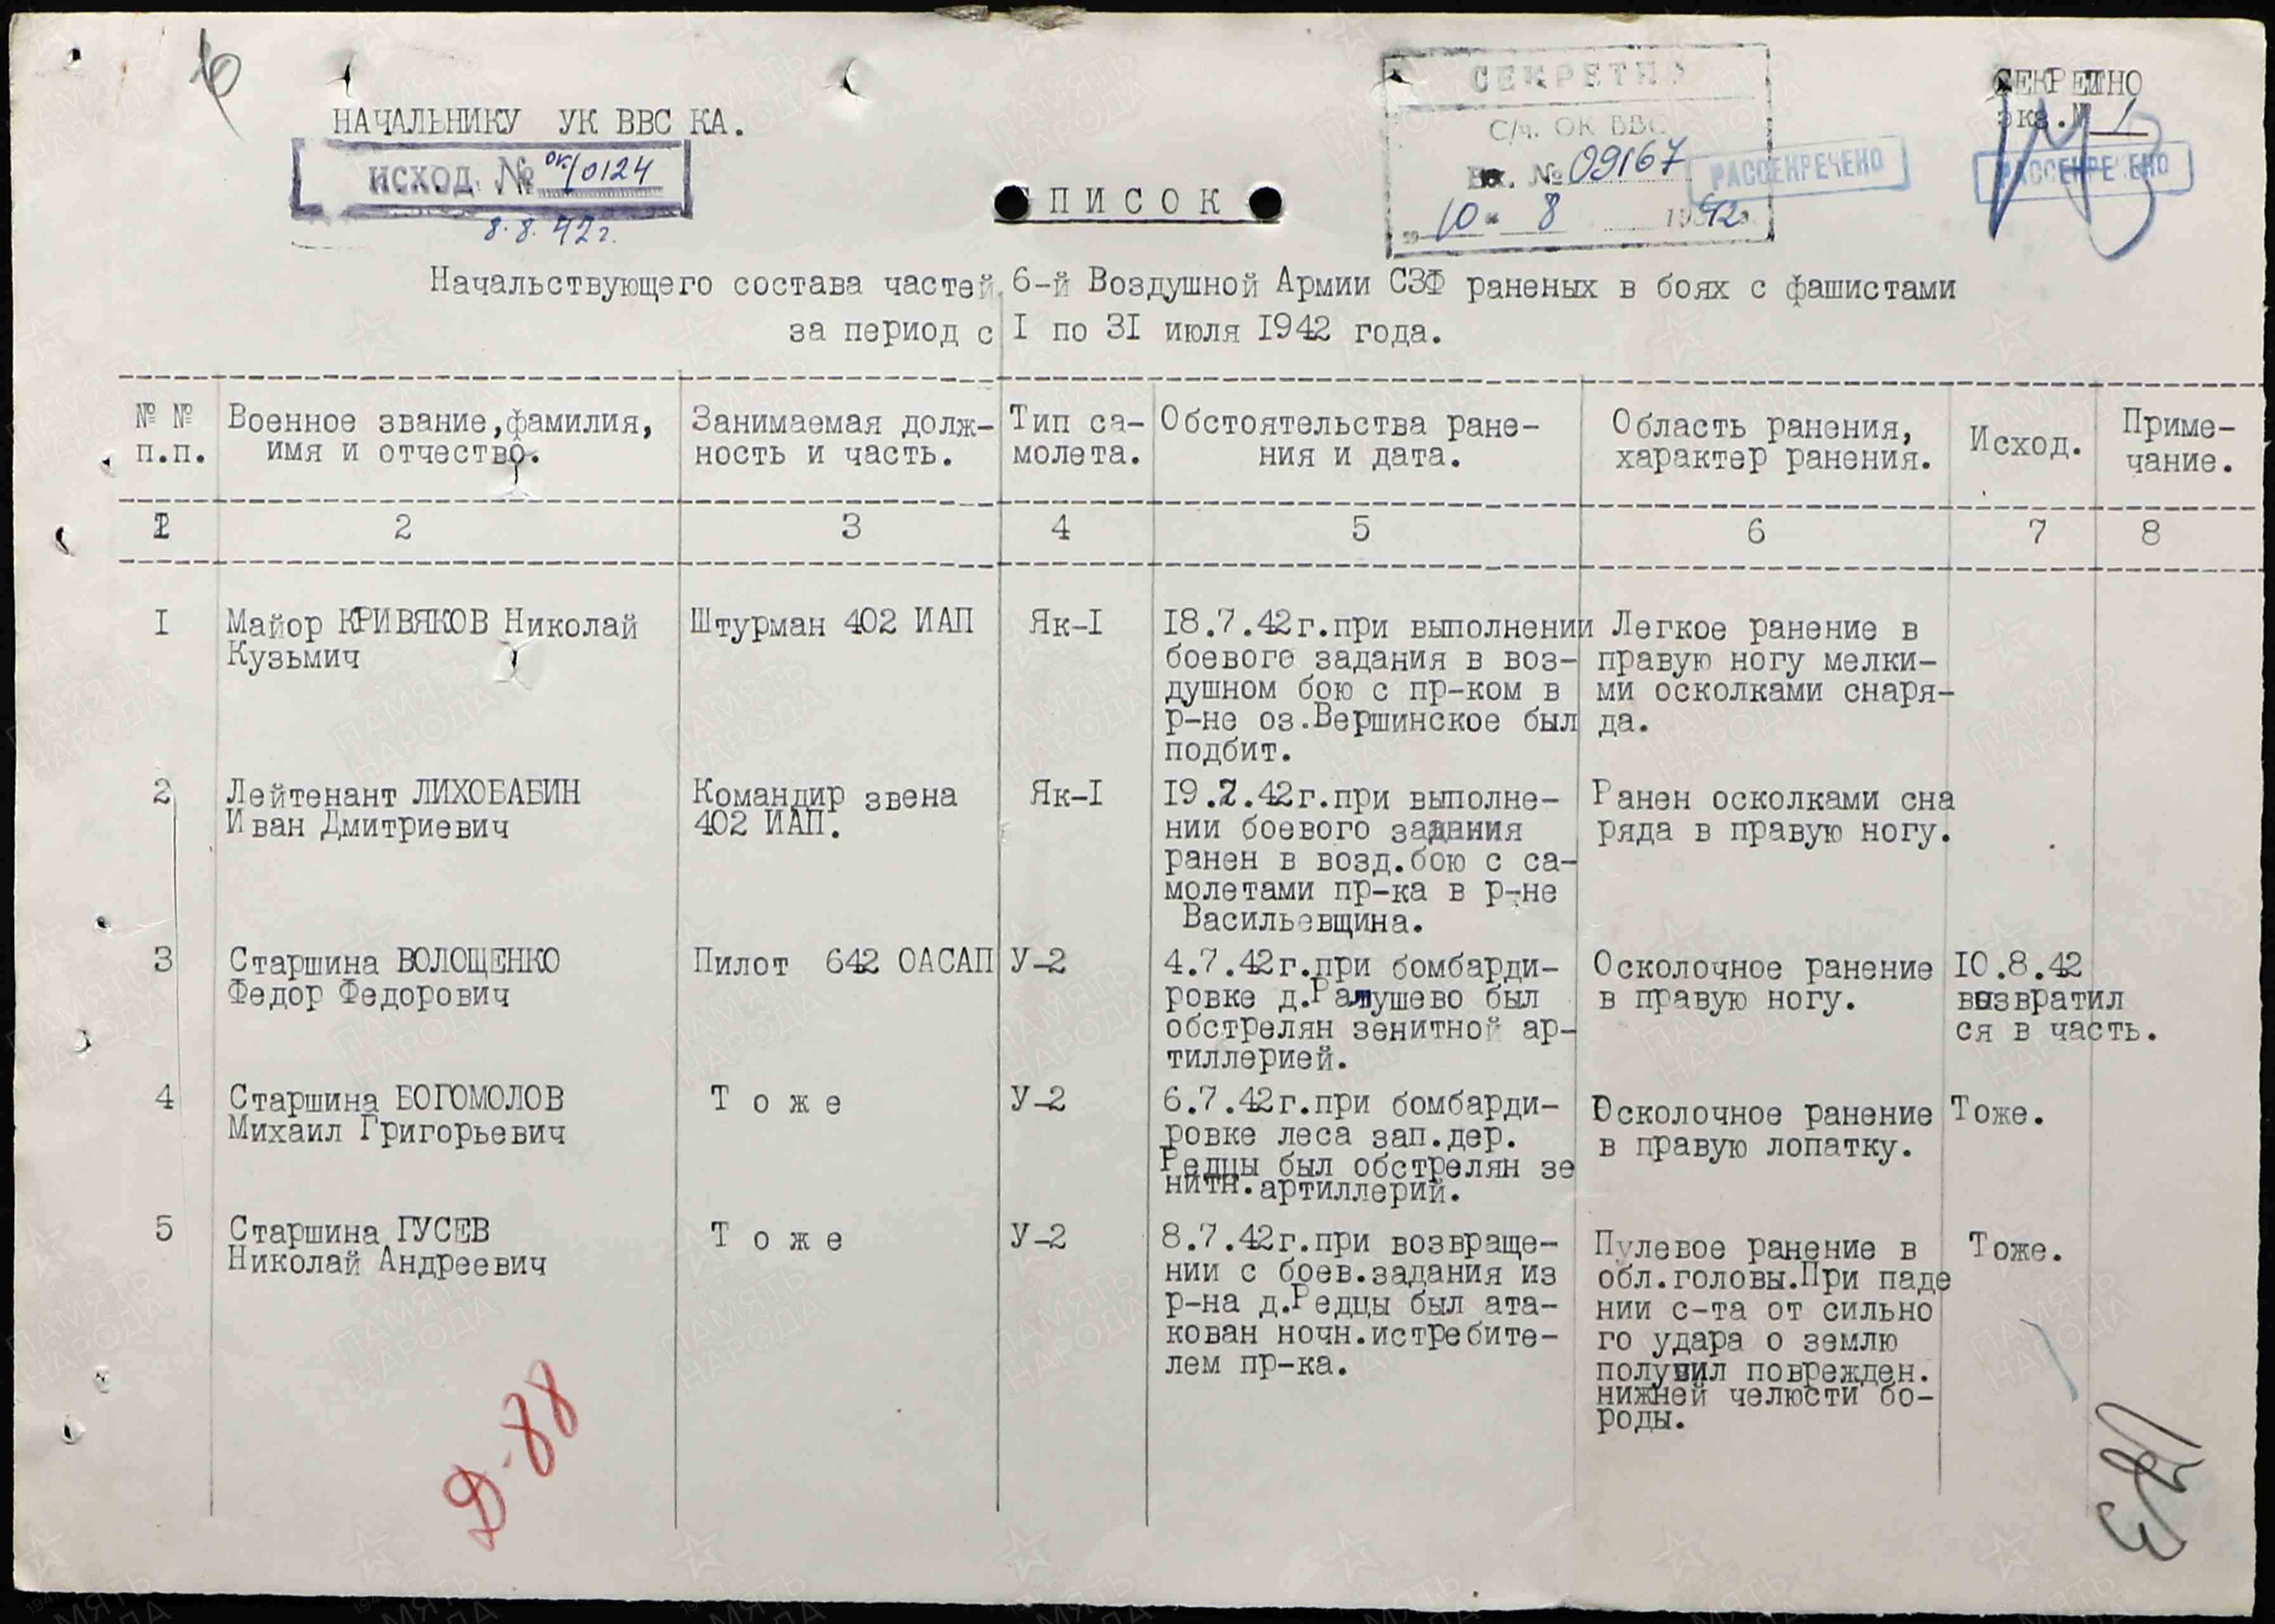 НАЧАЛЬНИКУ УК ВВС КА.
ИСХОД. № ок/0124
8.8.42г.
СЕКРЕТНО
С/ч. ОК ВВС
Вх. № 09167
"10" 8 1942г
РАССЕКРЕЧЕНО
СЕКРЕТНО
экз.№ 1
РАССЕКРЕЧЕНО
СПИСОК
Начальствующего состава частей 6-й Воздушной Армии СЗФ раненых в боях с фашистами
за период с I по 3I июля I942 года.
№ № Военное звание,фамилия, Занимаемая долж- Тип са- Обстоятельства ране- Область ранения, Исход. Приме-
п.п. имя и отчество. ность и часть. молета. ния и дата. характер ранения. чание.
I 2 3 4 5 6 7 8
I Майор КРИВЯКОВ Николай Штурман 402 ИАП Як-I I8.7.42г.при выполнении Легкое ранение в
Кузьмич боевого задания в воз- правую ногу мелки-
душном бою с пр-ком в ми осколками снаря-
р-не оз.Вершинское был да.
подбит.
2 Лейтенант ЛИХОБАБИН Командир звена Як-I I9.7.42г.при выполне- Ранен осколками сна
Иван Дмитриевич 402 ИАП. нии боевого задания ряда в правую ногу.
ранен в возд.бою с са-
молетами пр-ка в р-не
Васильевщина.
3 Старшина ВОЛОЩЕНКО Пилот 642 ОАСАП У-2 4.7.42г.при бомбарди- Осколочное ранение I0.8.42
Федор Федорович ровке д.Рамушево был в правую ногу. возвратил
обстрелян зенитной ар- ся в часть.
тиллерией.
4 Старшина БОГОМОЛОВ Т о ж е У-2 6.7.42г.при бомбарди- Осколочное ранение Тоже.
Михаил Григорьевич ровке леса зап.дер. в правую лопатку.
Редцы был обстрелян зе
нитн.артиллерий.
5 Старшина ГУСЕВ Т о ж е У-2 8.7.42г.при возвраще- Пулевое ранение в Тоже.
Николай Андреевич нии с боев.задания из обл.головы.При паде
р-на д.Редцы был ата- нии с-та от сильно
кован ночн.истребите- го удара о землю
лем пр-ка. получил поврежден.
нижней челюсти бо-
роды.
Д-88